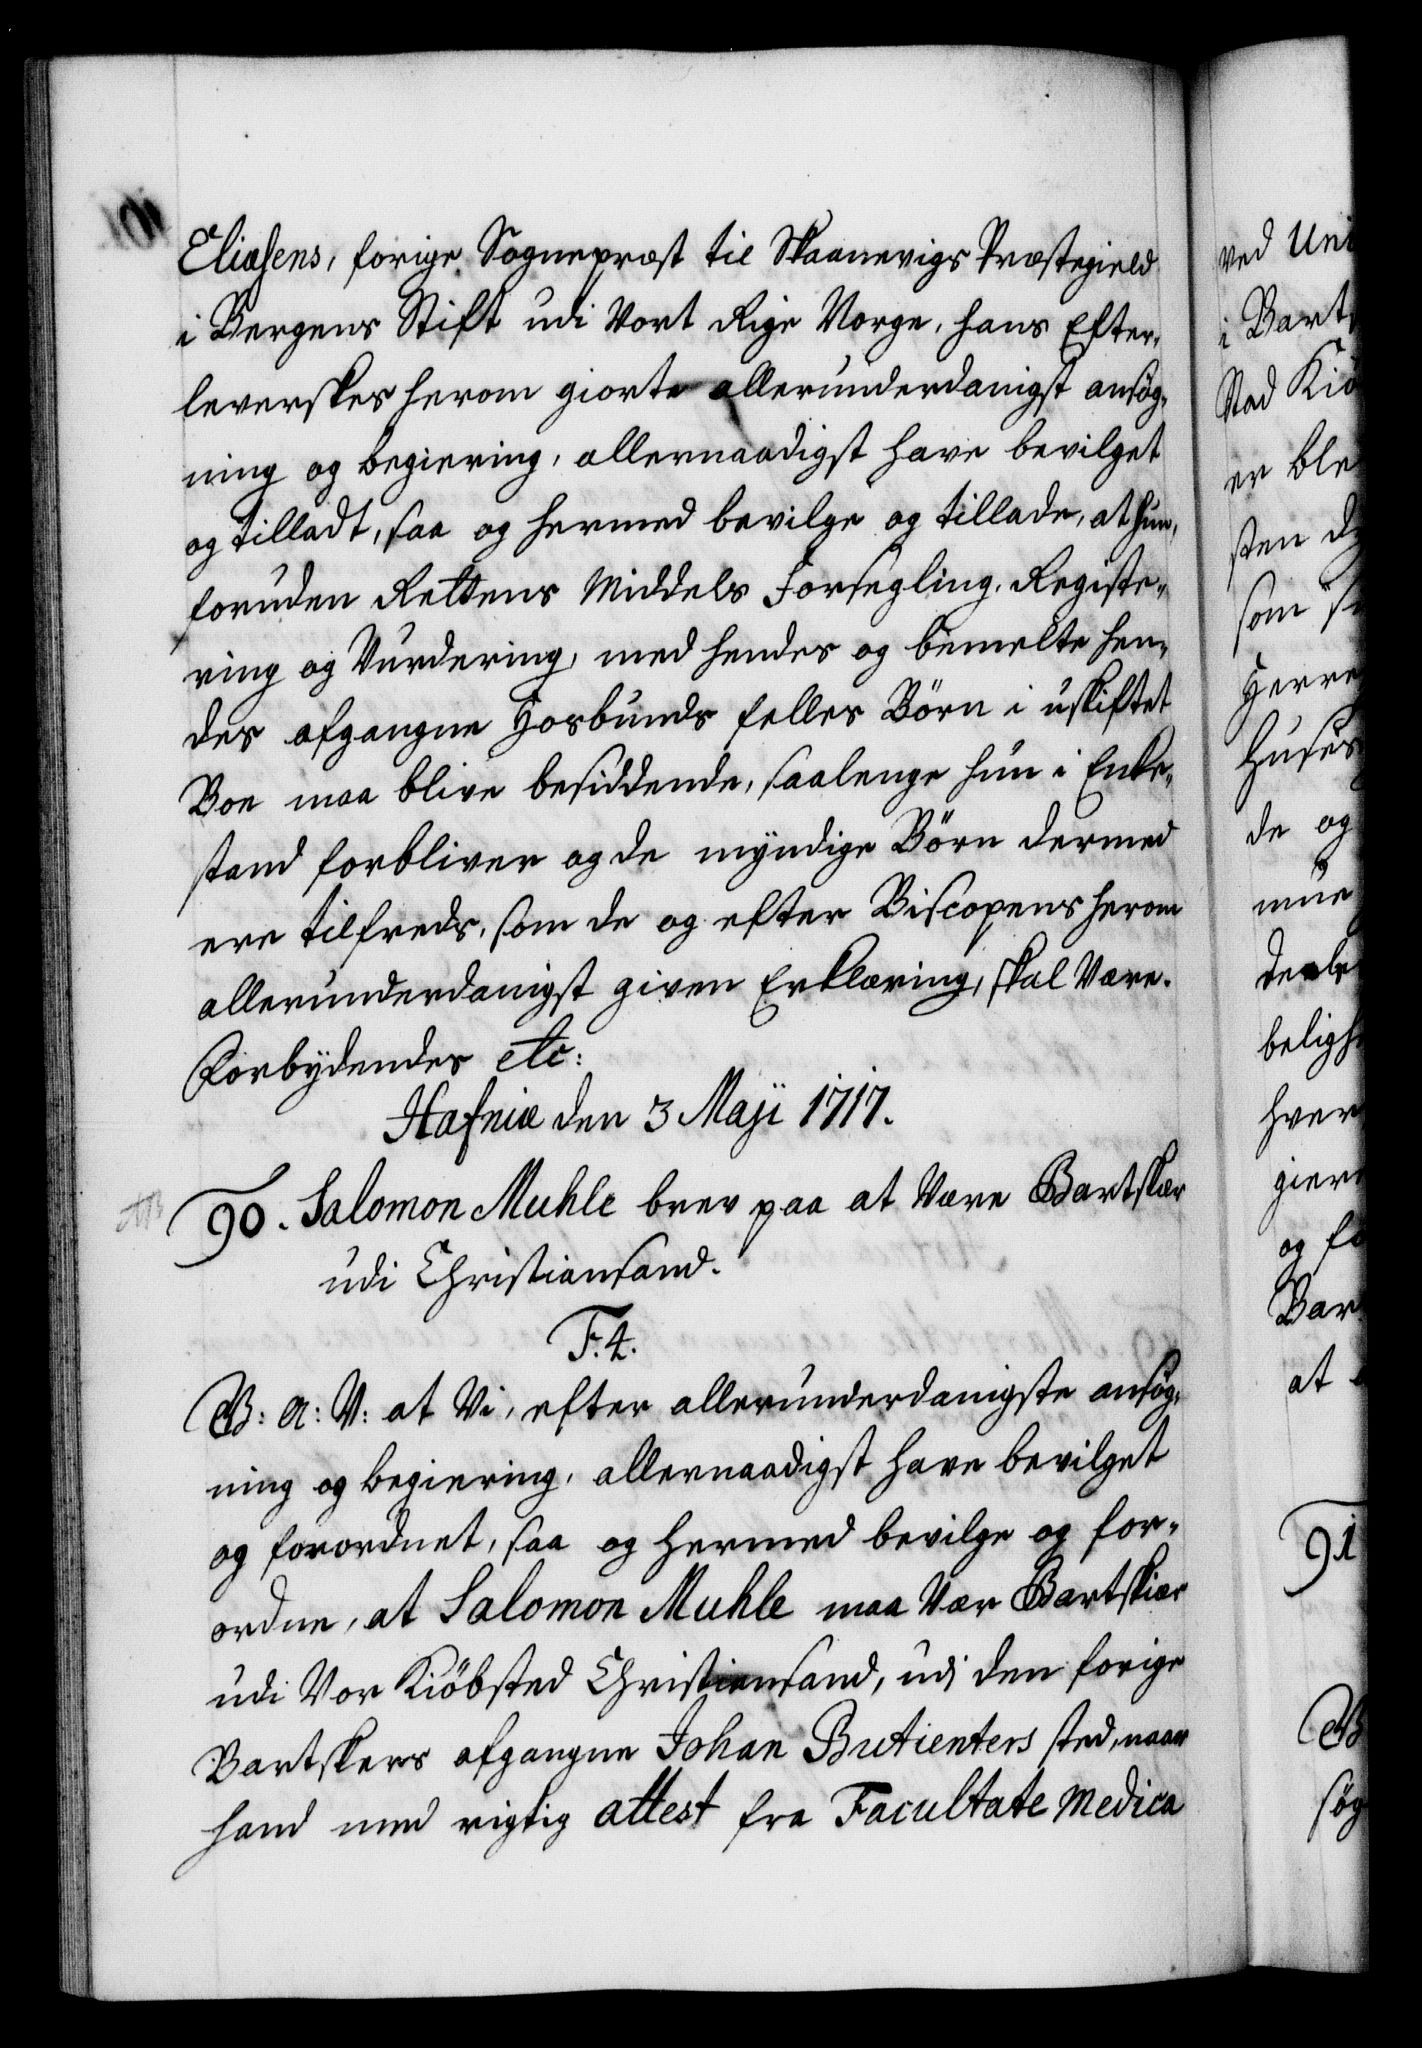 Eliæsens, forige Sognepræst til Skaanevigs Præstegield
i Bergens Stift udi Vort Rige Norge, hans Efter-
leverskes herom giorte allerunderdanigst ansøg-
ning og begiering, allernaadigst have bevilget
og tilladt, saa og hermed bevilge og tillade, at hun,
foruden Rettens Middels Forsegling, Registe-
ring og Vurdering, med hendes og bemelte hen-
des afgangne Hosbunds felles Börn i uskiftet
Boe maa blive besiddende, saalenge hun i Enke-
stand forbliver og de myndige Börn dermed
ere tilfreds, som de og efter Biscopens herom
allerunderdanigst given Erklæring, skal Være.
Forbydendes etc:
Hafniæ den 3 Maji 1717.
90. Salomon Muhle brev paa at Være Bartskær
udi Christiansand.
F. 4.
G: A: V: at Vi, efter allerunderdanigste ansøg-
ning og begiering, allernaadigst have bevilget
og forordnet, saa og hermed bevilge og for-
ordne, at Salomon Muhle maa Vær Bartskiær
udi Vor Kiöbsted Christiansand, udi den forige
Bartskers afgangne Johan Butienters sted, naar
hand med rigtig attest fra Facultate Medica
ved Uni
i Bart
Stad Kiö
er ble
sten d
som s
Herre
Huses
de og
mue
deels
beligh
hver
giern
og fo
Bar
at
91
søg